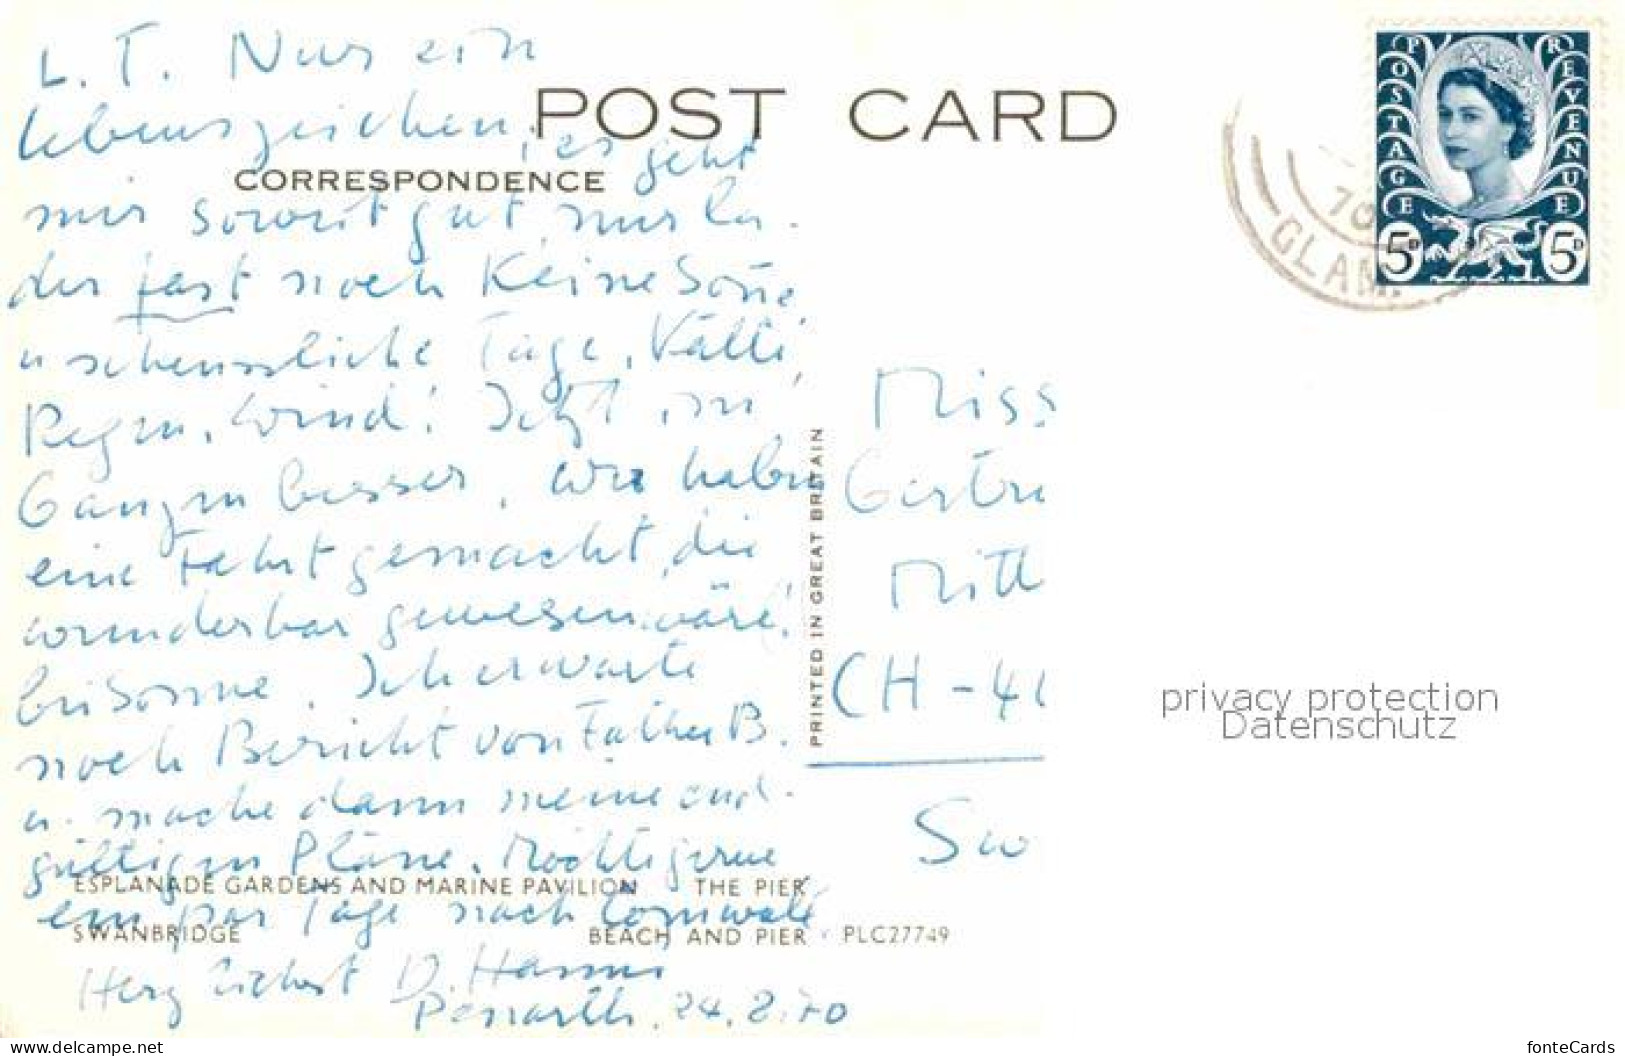 L. T. Nur ein
lebenszeichen, es geht
mir soweit gut, nur lei-
der fast noch Keine Sonne,
u scheussliche Tage, Kälte,
Regen, Wind! Jetzt im
Ganzen besser, wir haben
eine Fahrt gemacht, die
wunderbar gewesen wäre!
bei Sonne. Ich erwarte
noch Bericht von Father B.
u. mache dann meine end-
gültigen Pläne. Möchte gerne
ein paar Tage nach Cornwall
Herz lichst D. Hanni
Penarth. 24. 8. 70
POST CARD
CORRESPONDENCE
PRINTED IN GREAT BRITAIN
ESPLANADE GARDENS AND MARINE PAVILION THE PIER
SWANBRIDGE BEACH AND PIER PLC27749
POSTAGE REVENUE
5D 5D
70
GLAM.
Miss
Gertru
Mitt
CH-41
Sw
privacy protection
Datenschutz
www.delcampe.net
fonteCards